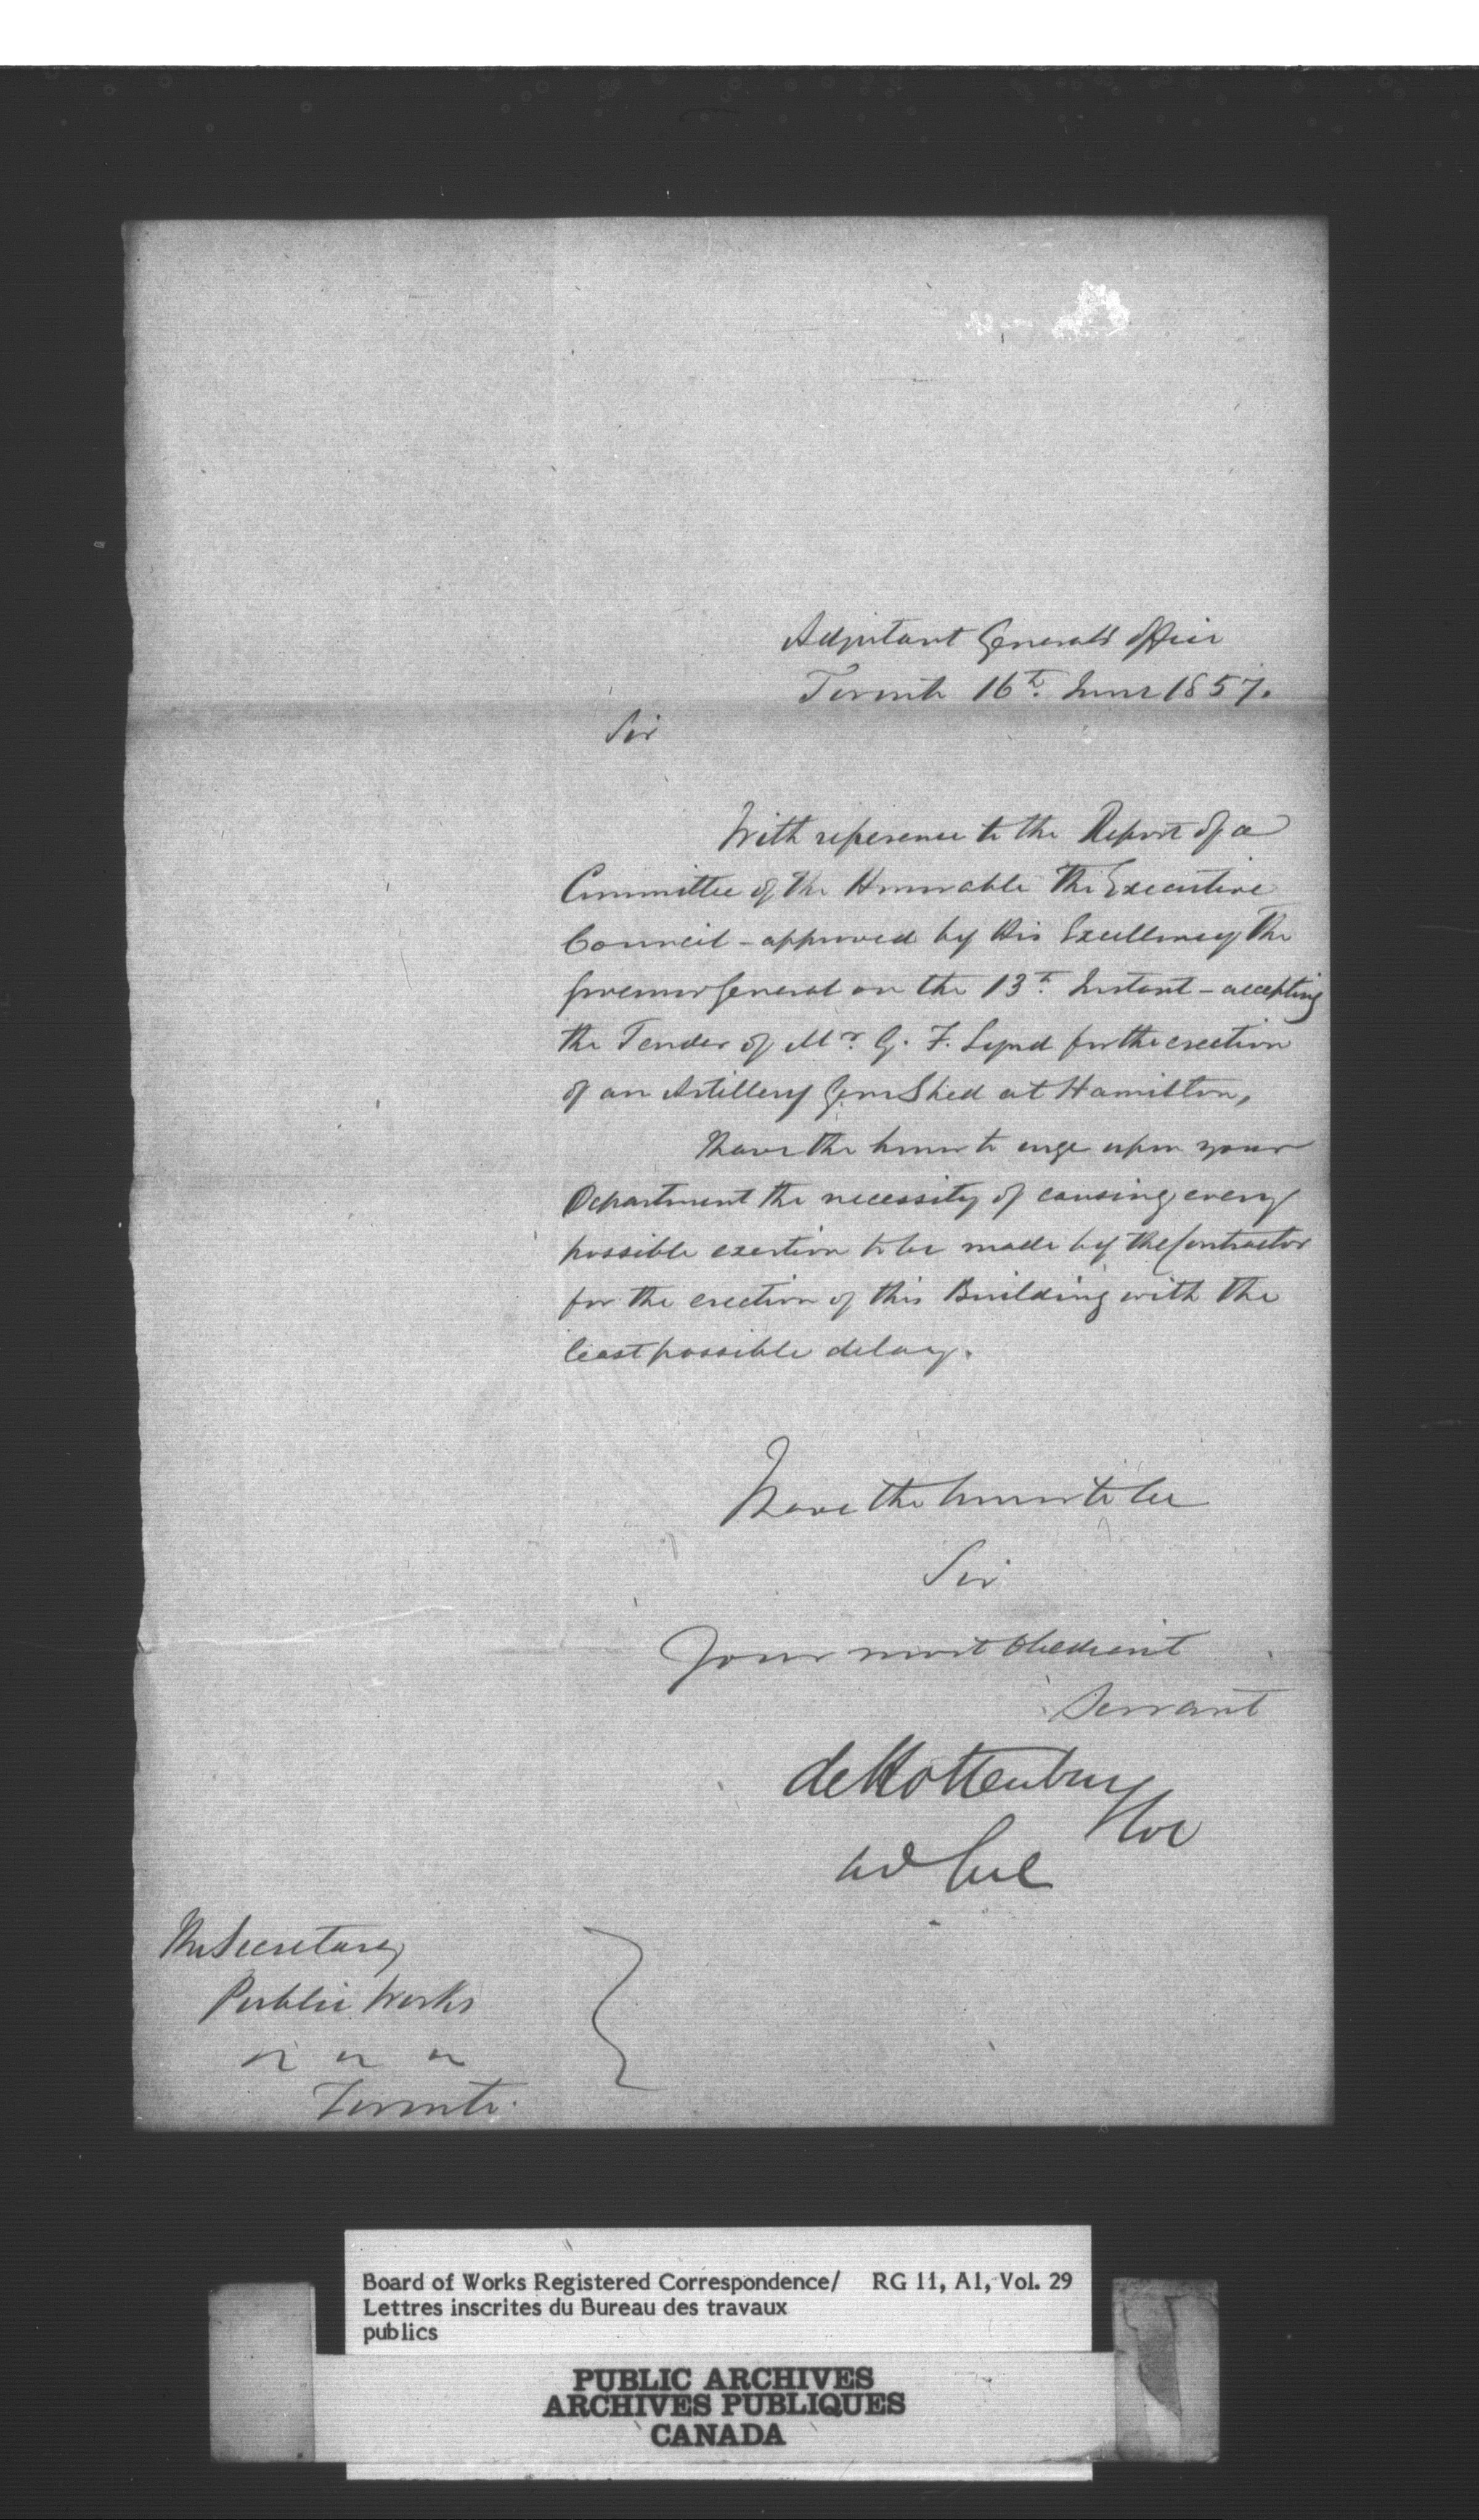 Adjutant General's Office
Toronto 16th. June 1857.
Sir
With reference to the Report of a
Committee of the Honorable The Executive
Council - approved by His Excellency The
Governor General on the 13th. Instant - accepting
the Tender of Mr. G. F. Lynd for the erection
of an Artillery Gun Shed at Hamilton,
I have the honor to urge upon your
Department the necessity of causing every
possible exertion to be made by the Contractor
for the erection of this Building with the
least possible delay.
I have the honor to be
Sir
Your most obedient
Servant
de Rottenburg
Col
The Secretary
Public Works
Toronto.
Board of Works Registered Correspondence/ RG 11, A1, Vol. 29
Lettres inscrites du Bureau des travaux
publics
PUBLIC ARCHIVES
ARCHIVES PUBLIQUES
CANADA